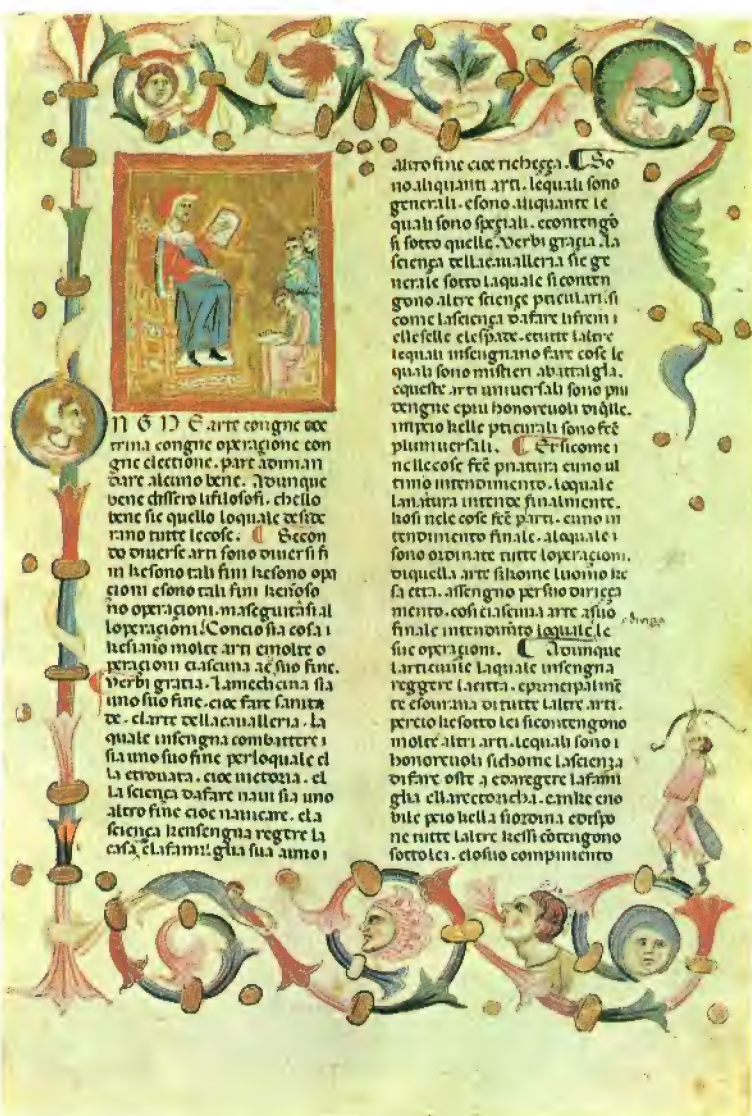 N G N E arte congne doc
trina congne operaçione con
gne electione. pare adiman
dare alcuno bene. Adunque
bene dissero lifilosofi. chello
bene sie quello loquale deside
rano tutte lecose. ¶ Secon
do diuerse arti sono diuersi fi
ni kesono tali fini kesono opa
çioni esono tali fini kenoso
no operaçioni. maseguitāsi al
loperaçioni. Concio sia cosa i
kesiano molte arti emolte o
peraçioni ciascuna ae suo fine.
¶ Verbi gratia. Lamedicina sia
uno suo fine. cioe fare sanita
de. elarte dellacaualleria. la
quale insengna combattere i
sia uno suo fine perloquale el
la etrouata. cioe uictoria. el
la sciença dafare naui sia uno
altro fine cioe nauicare. ela
sciença kensengna regere la
casa elafamilglia sua anno i
altro fine cioe richeçça. ¶ So
no aliquanti arti. lequali sono
generali. esono aliquante le
quali sono speçiali. econtengō
si sotto quelle. Verbi graçia. la
sciença dellacaualleria sie ge
nerale sotto laquale siconten
gono altre sciençe pticulari. si
come lasciença dafare lifreni i
elleselle elespade. etutte laltre
lequali insengnano fare cose le
quali sono mistieri abattalgla.
equeste arti uniuersali sono piu
dengne epiu honoreuoli diq̄lle.
impcio kelle pticulari sono fc̄e
pluniuersali. ¶ Ersicome i
nellecose fc̄e pnatura enno ul
timo intendimento. loquale
lanatura intende finalmente.
kosi nele cose fc̄e parti. enno in
tendimento finale. aloquale i
sono ordinate tutte loperaçioni.
diquella arte sikome luomo ke
sa etta. assengno persuo diriçça
mento. cosi ciascuna arte asuo
finale intendim̄to loquale le
sue operaçioni. ¶ Adunque
larticiuile laquale insengna
reggere lacitta. epuncipalmē
te esourana di tutte laltre arti.
percio kesotto lei sicontengono
molte altri arti. lequali sono i
honoreuoli sichome lascienza
difare oste  edaregere lafami
glia ellarectoricha. eanke eno
bile pcio kella siordina edispo
ne tutte laltre kessi cōtengono
sottolei. elosuo compimento